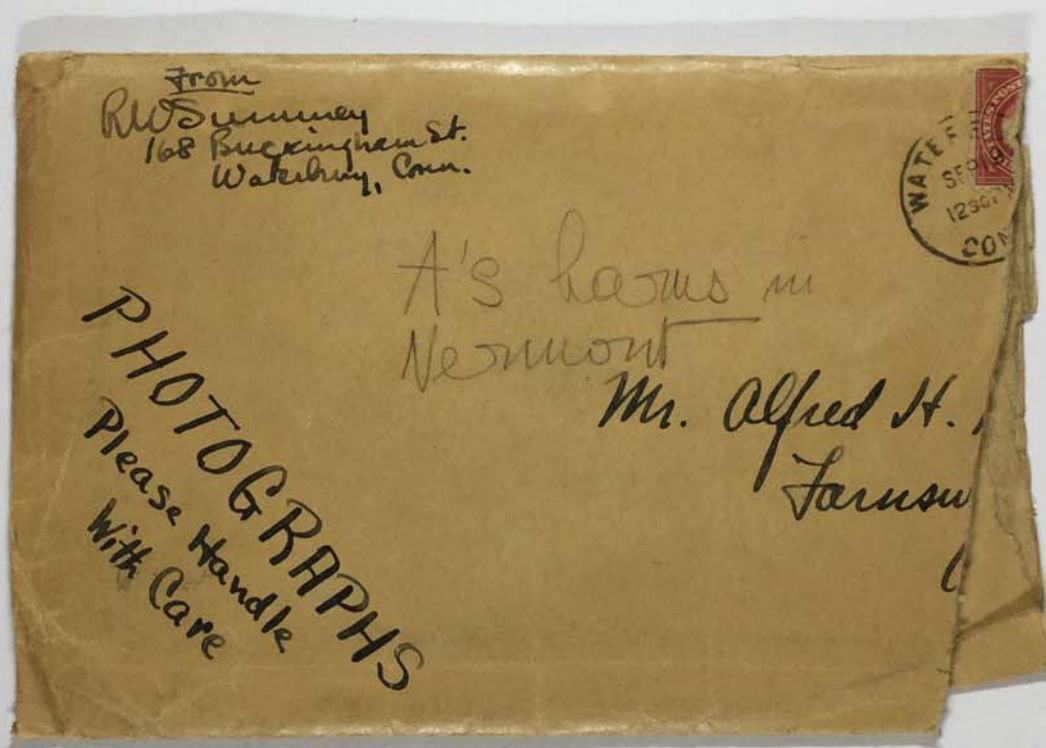 From
RWSummey
168 Buckingham St.
Waterbury, Conn.
STATES POST
WATER
SEP
1230P
CON
A's barns in
Vermont
Mr. Alfred H.
Farnsw
PHOTOGRAPHS
Please Handle
With Care